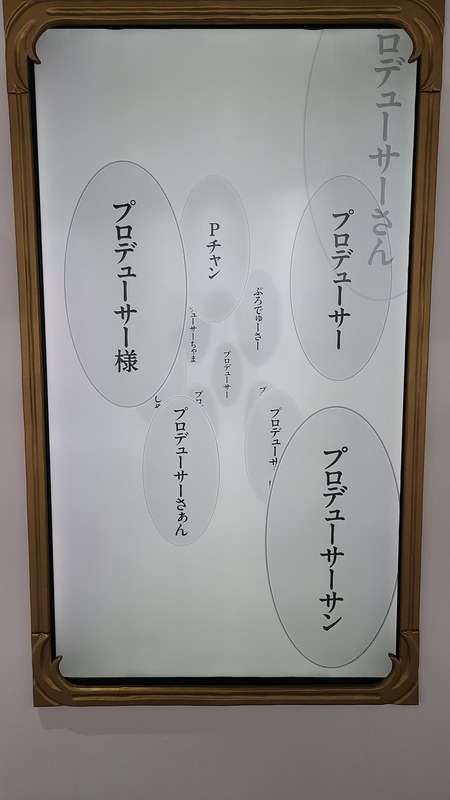 ロデューサーさん
プロデューサー
プロデューサーサン
ぷろでゅーさー
プロデューサ
プ
プロデューサー
Pチャン
ューサーちゃま
プロ
プロデューサーさぁん
プロデューサー様